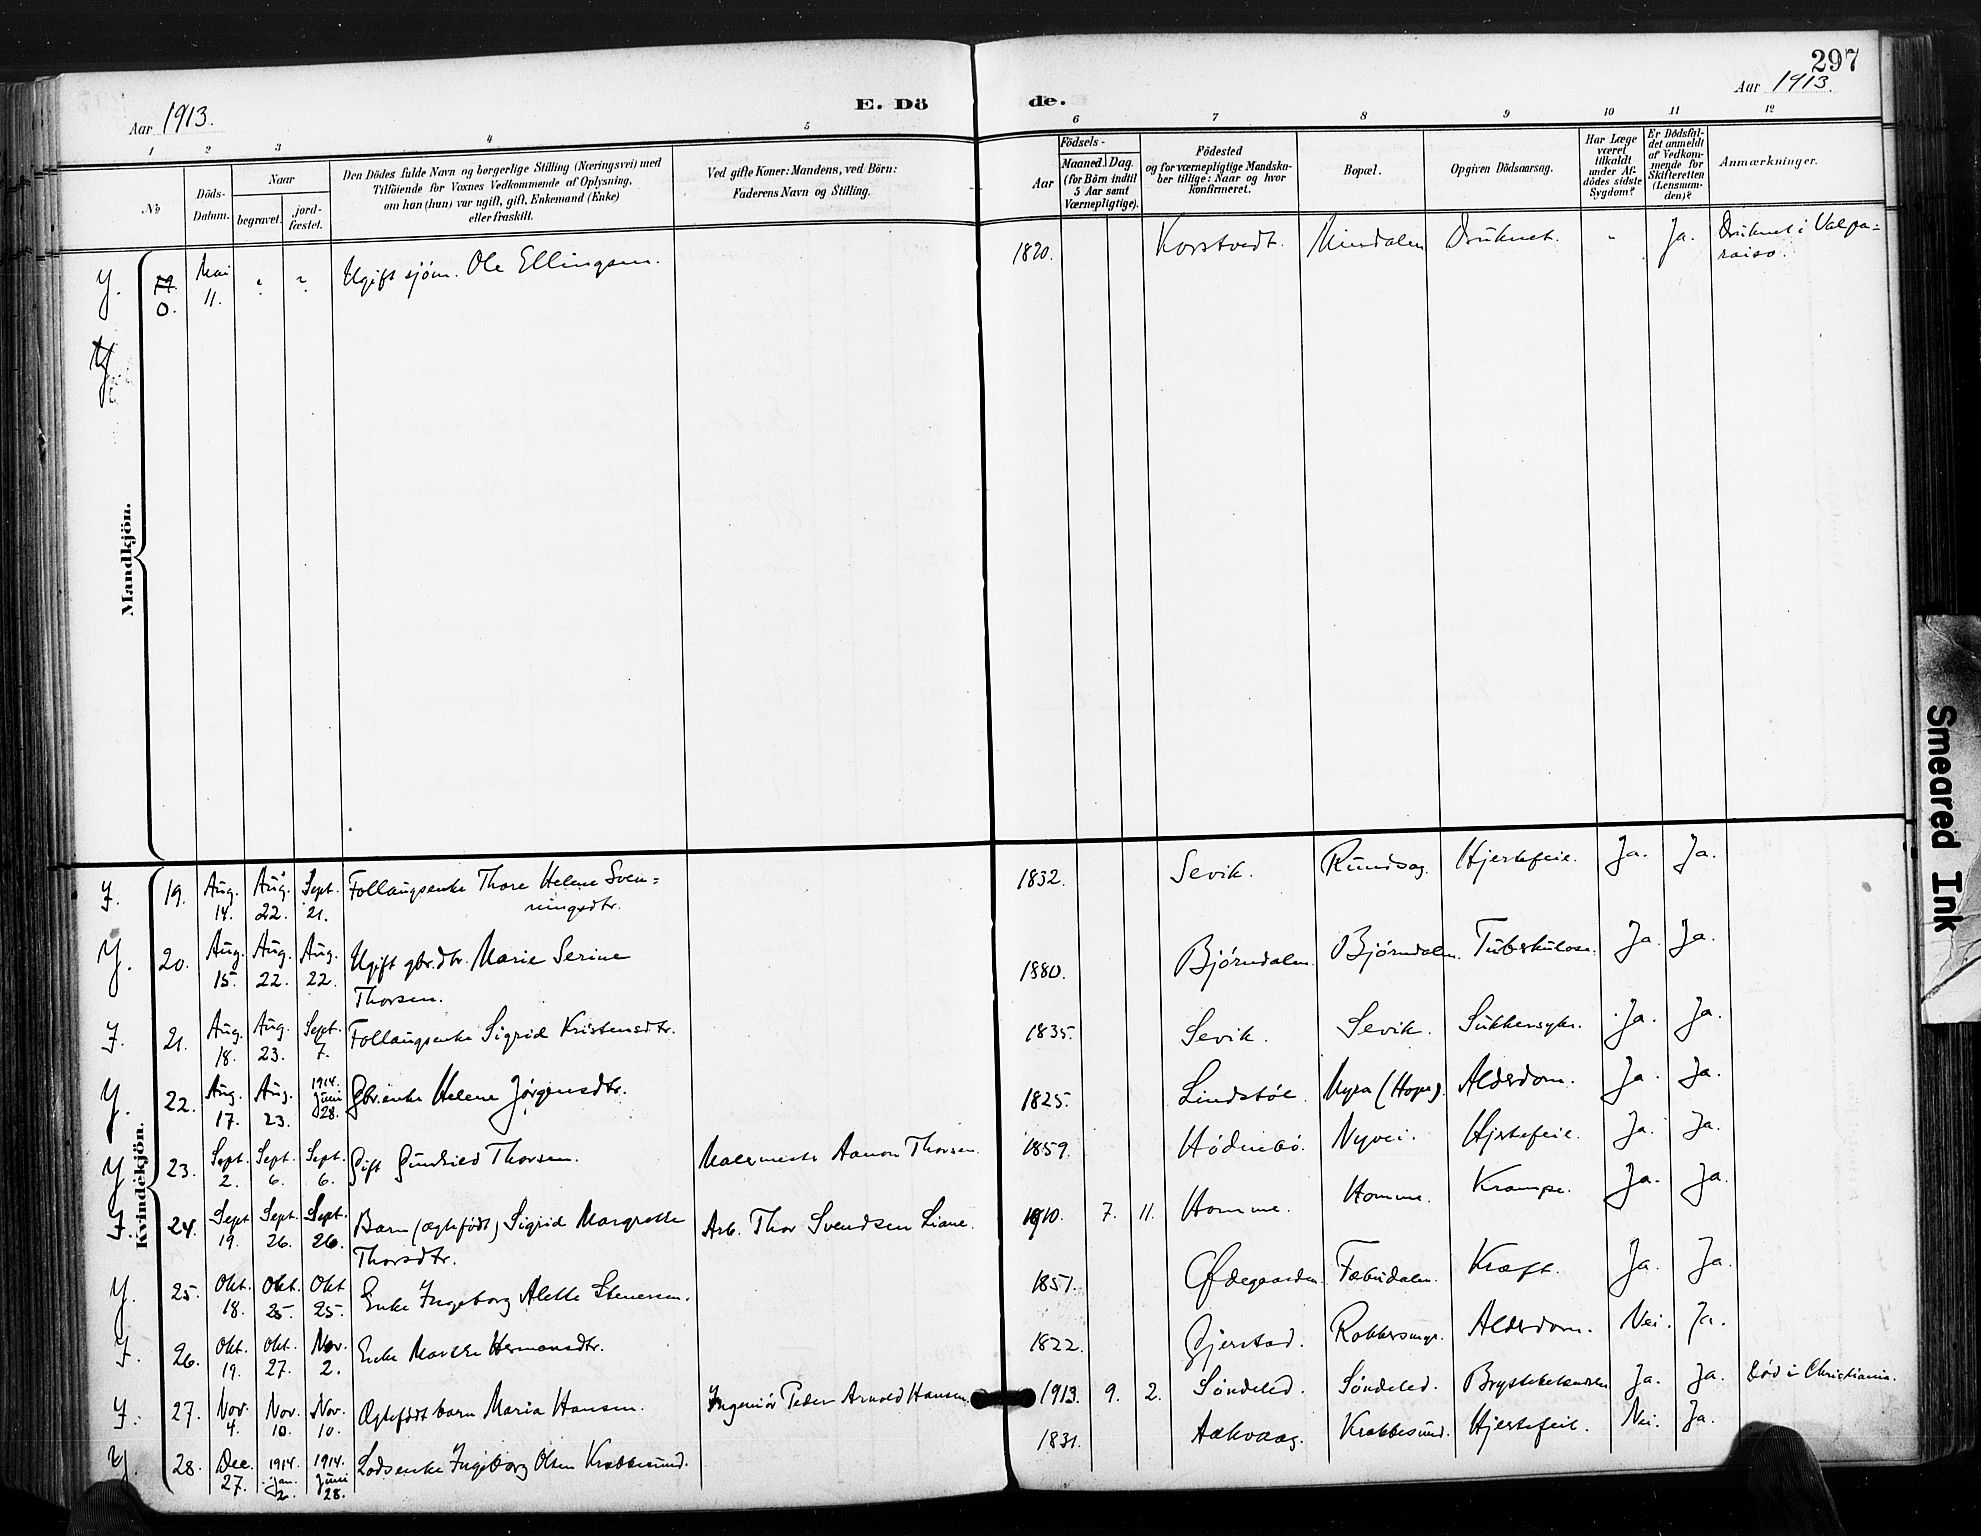 297
Aar 1913.
E. Dö
de.
Aar 1913.
1 2 3 4 5 6 7 8 9 10 11 12
No
Döds-Datum.
Naar
begravet.
jord-fæstet.
Den Dödes fulde Navn og borgerlige Stilling (Næringsvei) med
Tilföiende for Voxnes Vedkommende af Oplysning,
om han (hun) var ugift, gift, Enkemand (Enke)
eller fraskilt.
Ved gifte Koner: Mandens, ved Börn:
Faderens Navn og Stilling.
Födsels-
Aar
Maaned. Dag.
(for Börn indtil
5 Aar samt
Værnepligtige).
Födested
og for værnepligtige Mandska-
ber tillige: Naar og hvor
konfirmeret.
Bopæl.
Opgiven Dödsaarsag.
Har Læge
været
tilkaldt
under Af-
dödes sidste
Sygdom?
Er Dödsfal-
det anmeldt
af Vedkom-
mende for
Skifteretten
(Lensman-
den)?
Anmærkninger.
Mandkjön.
Y. 0. Mai 11. " " Ugift sjöm. Ole Ellingsen. Korstvedt. Druknet. " Ja. Druknet i Valpa=
raiso.
Kvindekjön.
19. Aug. 14. Aug. 22. Sept. 21. Follaugsenke Thore Helene Sven=
ningsdtr. 1832. Sevik. Hjertefeil. Ja. Ja.
Y. 20. Aug. 15. Aug. 22. Aug. 22. Ugift gbr.dtr. Marie Serine
Thorsen. 1880. Bjørndalen. Bjørndalen. Tuberkulose. Ja. Ja.
21. Aug. 18. Aug. 23. Sept. 7. Follaugsenke Sigrid Kristensdtr. 1835. Sevik. Sevik. Sukkersyke. Ja. Ja.
Y. 22. Aug. 17. Aug. 23. 1914. Juni 28. Gbr.enke Helene Jørgensdtr. 1825. Lindstøl. Myra (Hope). Alderdom. Ja. Ja.
Y 23. Sept. 2. Sept. 6. Sept. 6. Gift Gunhild Thorsen. Malermester Aanon Thorsen. 1859. Hødnebø. Nyvei. Hjertefeil. Ja. Ja.
24. Sept 19. Sept. 26. Sept. 26. Barn (ægtefødt) Sigrid Margrethe
Thorsdtr. Arb. Thor Svendsen Liane. 1910. 7. 11. Homme. Homme. Krampe. Ja. Ja.
Y. 25. Okt. 18. Okt. 25. Okt 25. Enke Ingeborg Alette Stenersen. 1851. Ødegaarden. Kræft. Ja. Ja.
26. Okt. 19. Okt. 27. Nov. 2. Enke Marthe Hermansdtr. 1822. Gjerstad. Alderdom. Nei. Ja.
27. Nov. 4. Nov. 10. Nov. 10. Ægtefødt barn Maria Hansen. Ingeniør Peder Arnold Hansen. 1913. 9. 2. Søndeled. Søndeled. Ja. Ja. Død i Christiania.
Y. 28. Dec. 27. 1914. Jan. 2. 1914. Juni 28. Lodsenke Ingeborg Olsen Krabbesund. 1831. Aakvaag. Krabbesund. Hjertefeil. Nei. Ja.
Smeared Ink